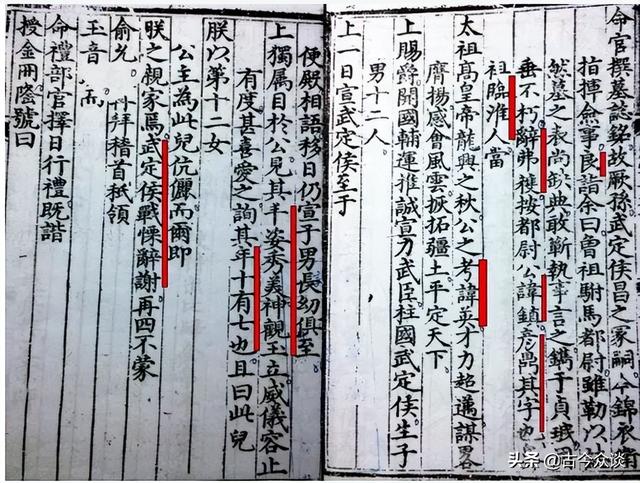 命官撰墓誌銘故厥孫武定侯昌之冢嗣今錦衣
指揮僉事良詣余曰曾祖駙馬都尉雖勒以
然墓之表尚缺典敢靳執事言之鐫于貞珉
垂不朽辭弗獲按都尉公諱鎮彥禺其字也
祖臨淮人當
太祖高皇帝龍興之秋公之考諱英才力超邁謀畧
膺揚感會風雲恢拓疆土平定天下
上賜爵開國輔運推誠宣力武臣柱國武定侯生子
男十二人
上一日宣武定侯至于
便殿相語移日仍宣子男長幼俱至
上獨属目於公見其丰姿秀美神觀玉立威儀容止
有度甚喜愛之詢其年十有七也且曰此兒
朕以第十二女
公主為此兒伉儷而爾即
朕之親家焉武定侯戰慄辭謝再四不蒙
俞允拜稽首祇領
玉音而
命禮部官擇日行禮既諧
授金冊隆號曰
头条 @古今众谈